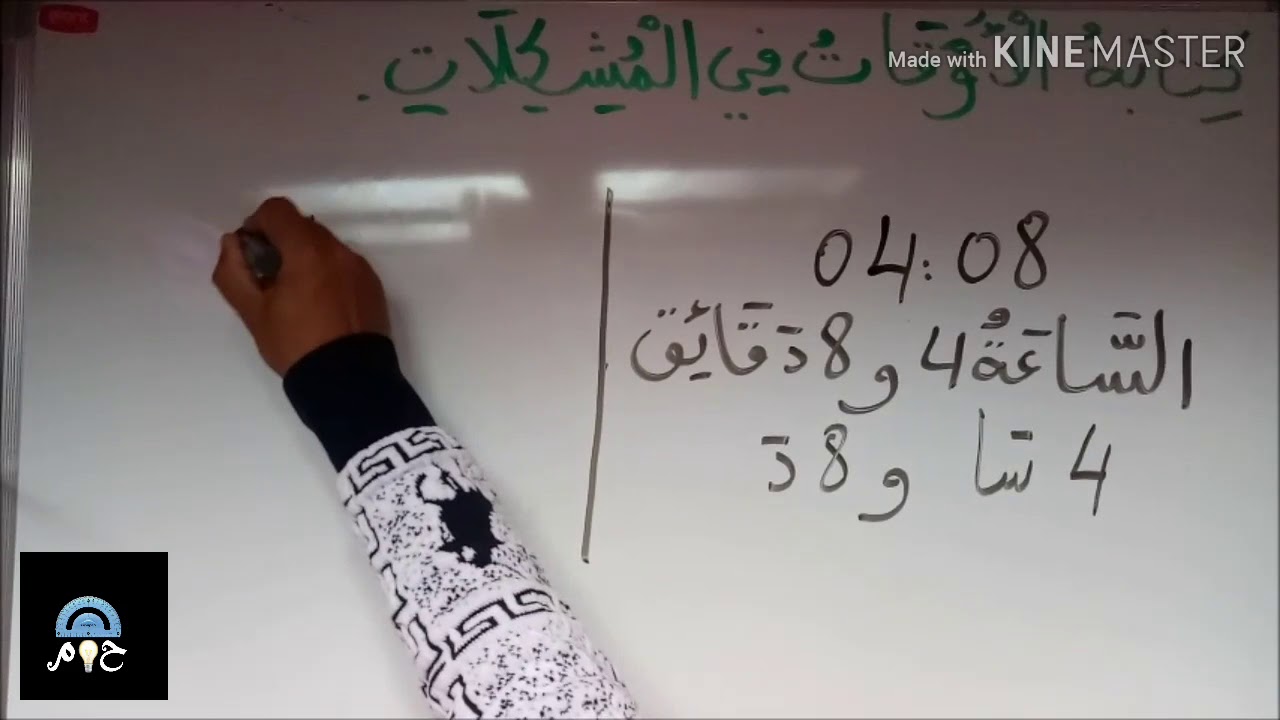 كِتَابَةُ الْأَوْقَاتُ فِي الْمُشْكِلَاتِ.
Made with KINEMASTER
04:08
السَّاعَةُ 4 و 8 دَقَائِق
4 سَا و 8 دَ
حم